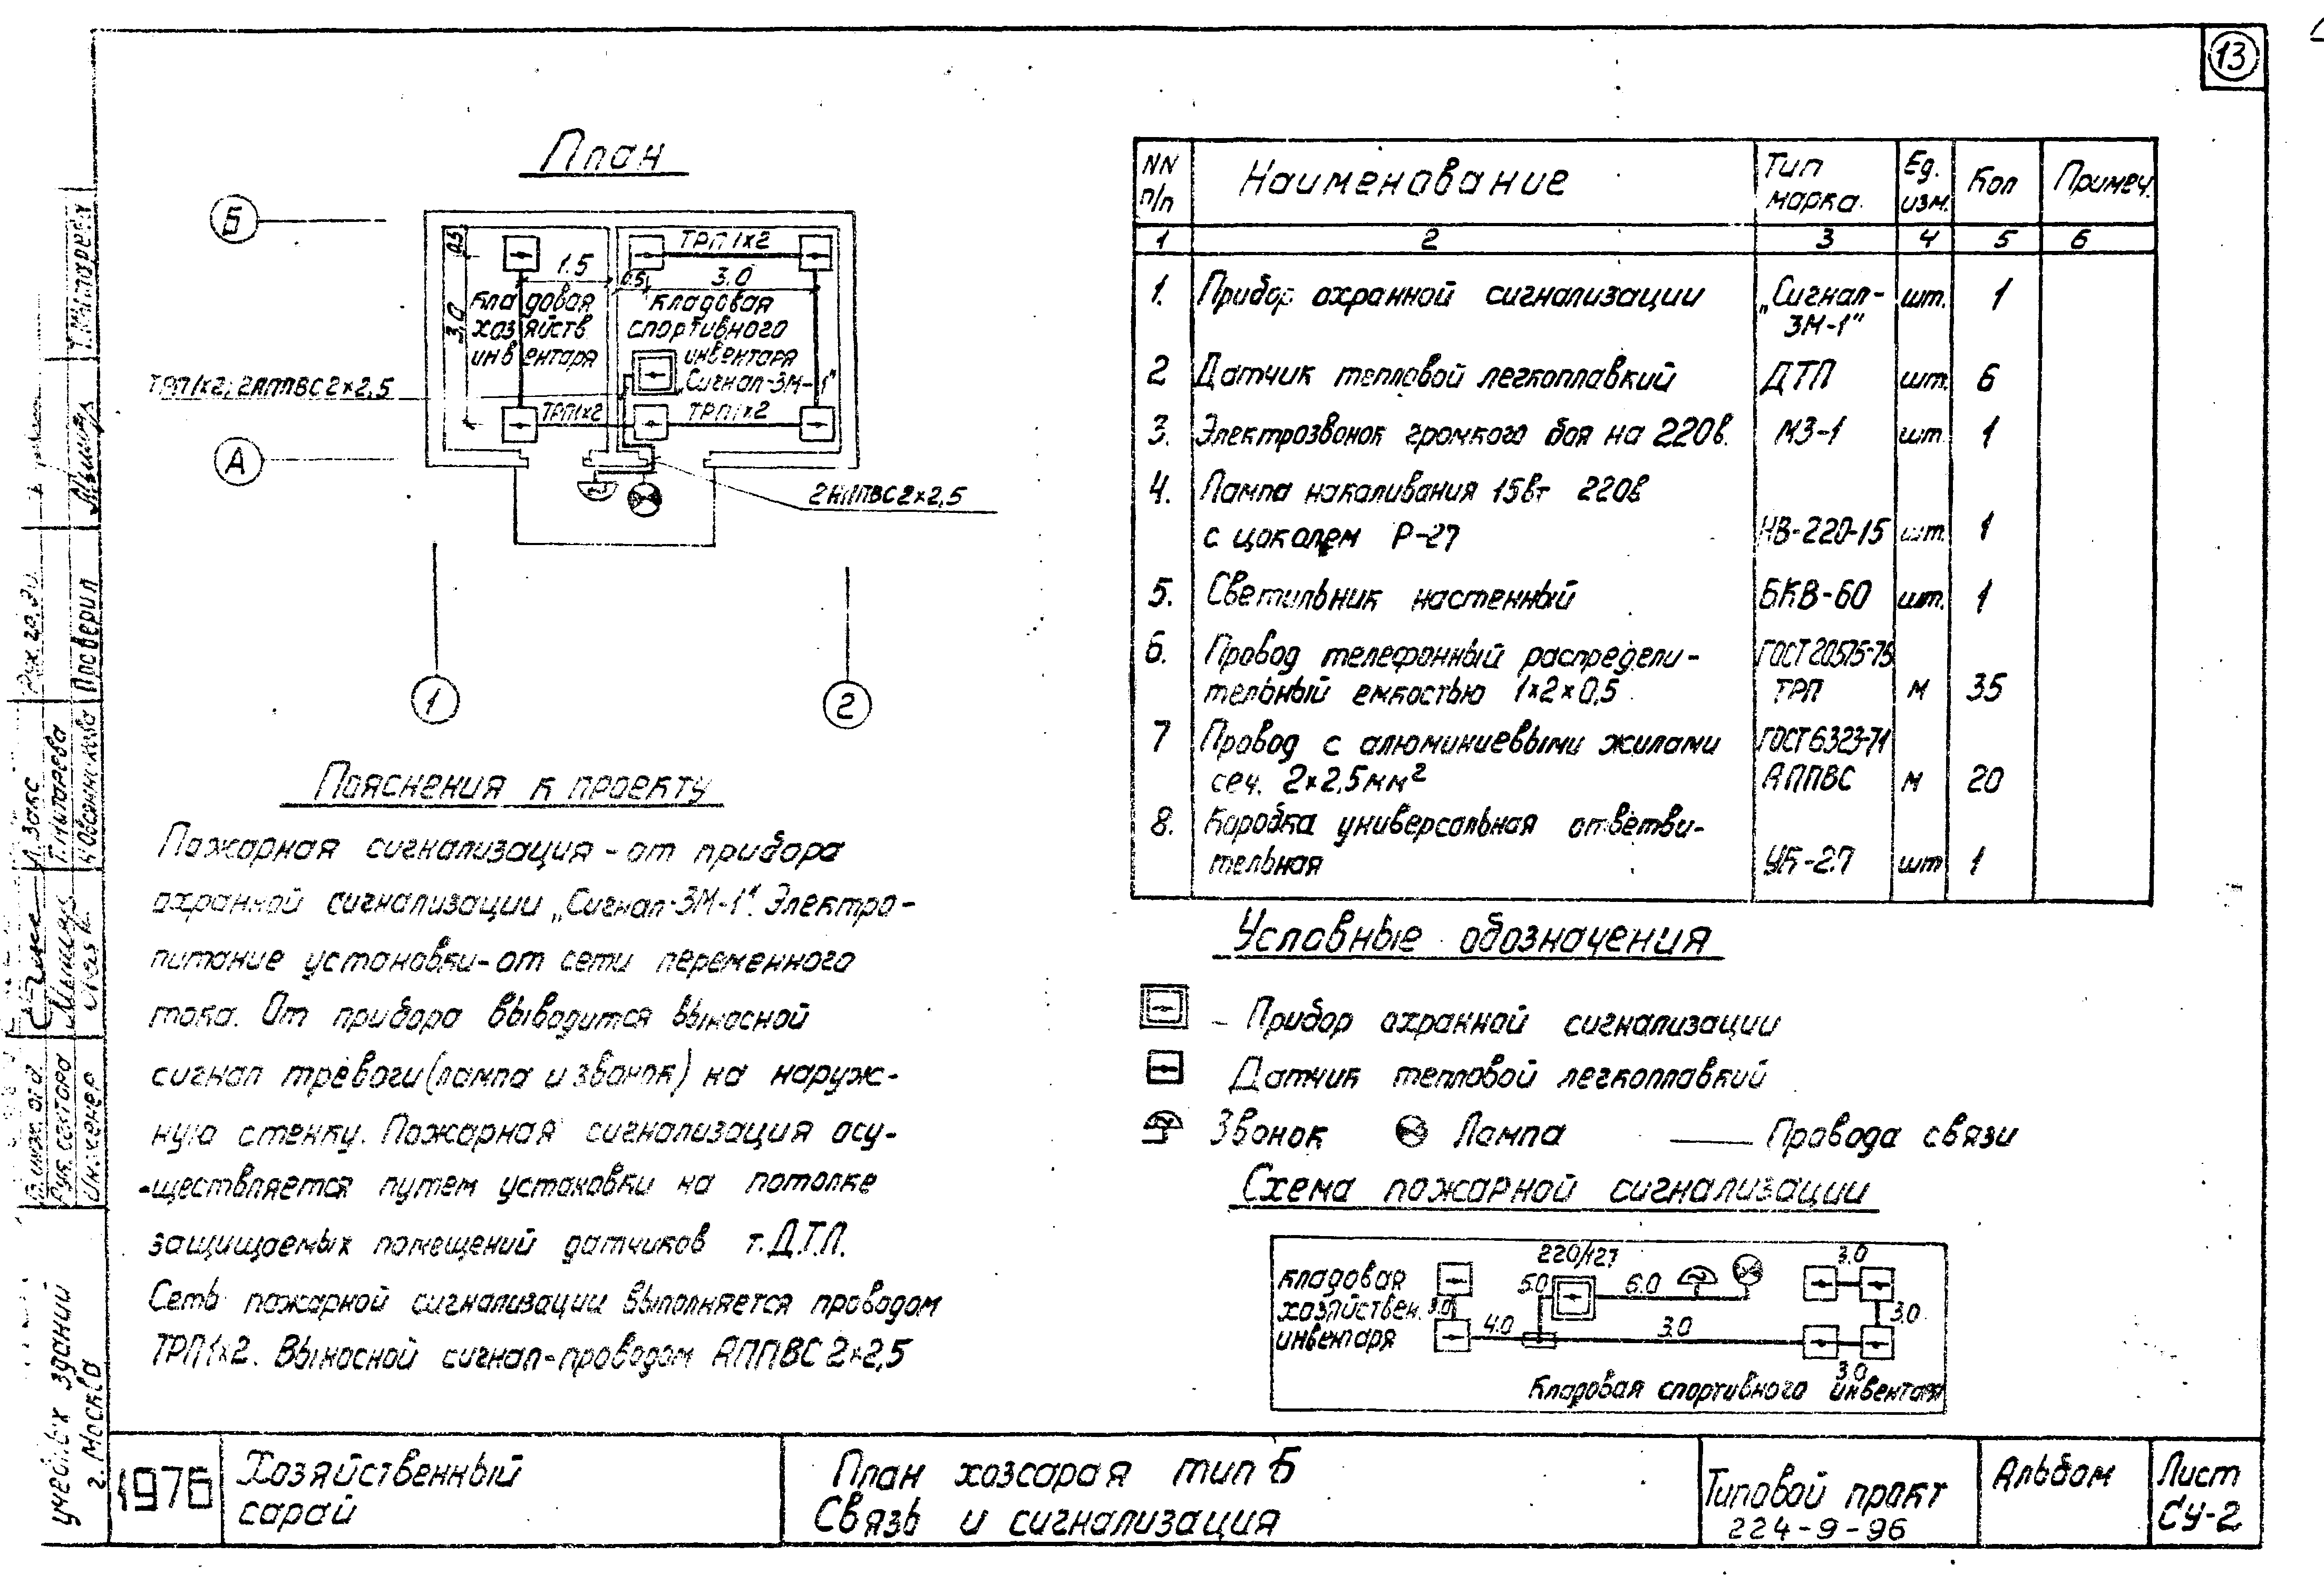 13
План
Б
0.5
ТРП 1×2
1.5
0.5
3.0
3.0
Кладовая
хозяйств.
инвентаря
Кладовая
спортивного
инвентаря
„Сигнал-3М-1"
ТРП 1×2; 2АППВС 2×2,5
ТРП1×2
ТРП1×2
А
2АППВС 2×2,5
1
2
NN п/п
Наименование
Тип марка
Ед. изм.
Кол
Примеч.
1 2 3 4 5 6
1. Прибор охранной сигнализации „Сигнал- шт. 1
3М-1"
2 Датчик тепловой легкоплавкий ДТЛ шт. 6
3. Электрозвонок громкого боя на 220в. МЗ-1 шт. 1
4. Лампа накаливания 15вт 220в
с цоколем Р-27 НВ-220-15 шт. 1
5. Светильник настенный БКВ-60 шт. 1
6. Провод телефонный распредели- ГОСТ 20575-75
тельный емкостью 1×2×0,5 ТРП м 35
7 Провод с алюминиевыми жилами ГОСТ 6323-71
сеч. 2×2,5мм² АППВС м 20
8. Коробка универсальная ответви-
тельная УК-2П шт 1
Пояснения к проекту
Пожарная сигнализация - от прибора
охранной сигнализации „Сигнал-3М-1". Электро-
питание установки-от сети переменного
тока. От прибора выводится выносной
сигнал тревоги (лампа и звонок) на наруж-
ную стенку. Пожарная сигнализация осу-
-ществляется путем установки на потолке
защищаемых помещений датчиков т. Д.Т.Л.
Сеть пожарной сигнализации выполняется проводом
ТРП 1×2. Выносной сигнал-проводом АППВС 2×2,5
Условные обозначения
- Прибор охранной сигнализации
Датчик тепловой легкоплавкий
Звонок Лампа Провода связи
Схема пожарной сигнализации
Кладовая
хозяйствен.
инвентаря
3.0
4.0
5.0
220/127
6.0
3.0
3.0
3.0
3.0
Кладовая спортивного инвентаря
Т. Митарева
Проверил
Л. Закс
Т. Митарева
Рук. сектора
Инженер
учебных зданий
г. Москва
1976
Хозяйственный
сарай
План хозсарая тип Б
Связь и сигнализация
Типовой прокт
224-9-96
Альбом
Лист
СУ-2